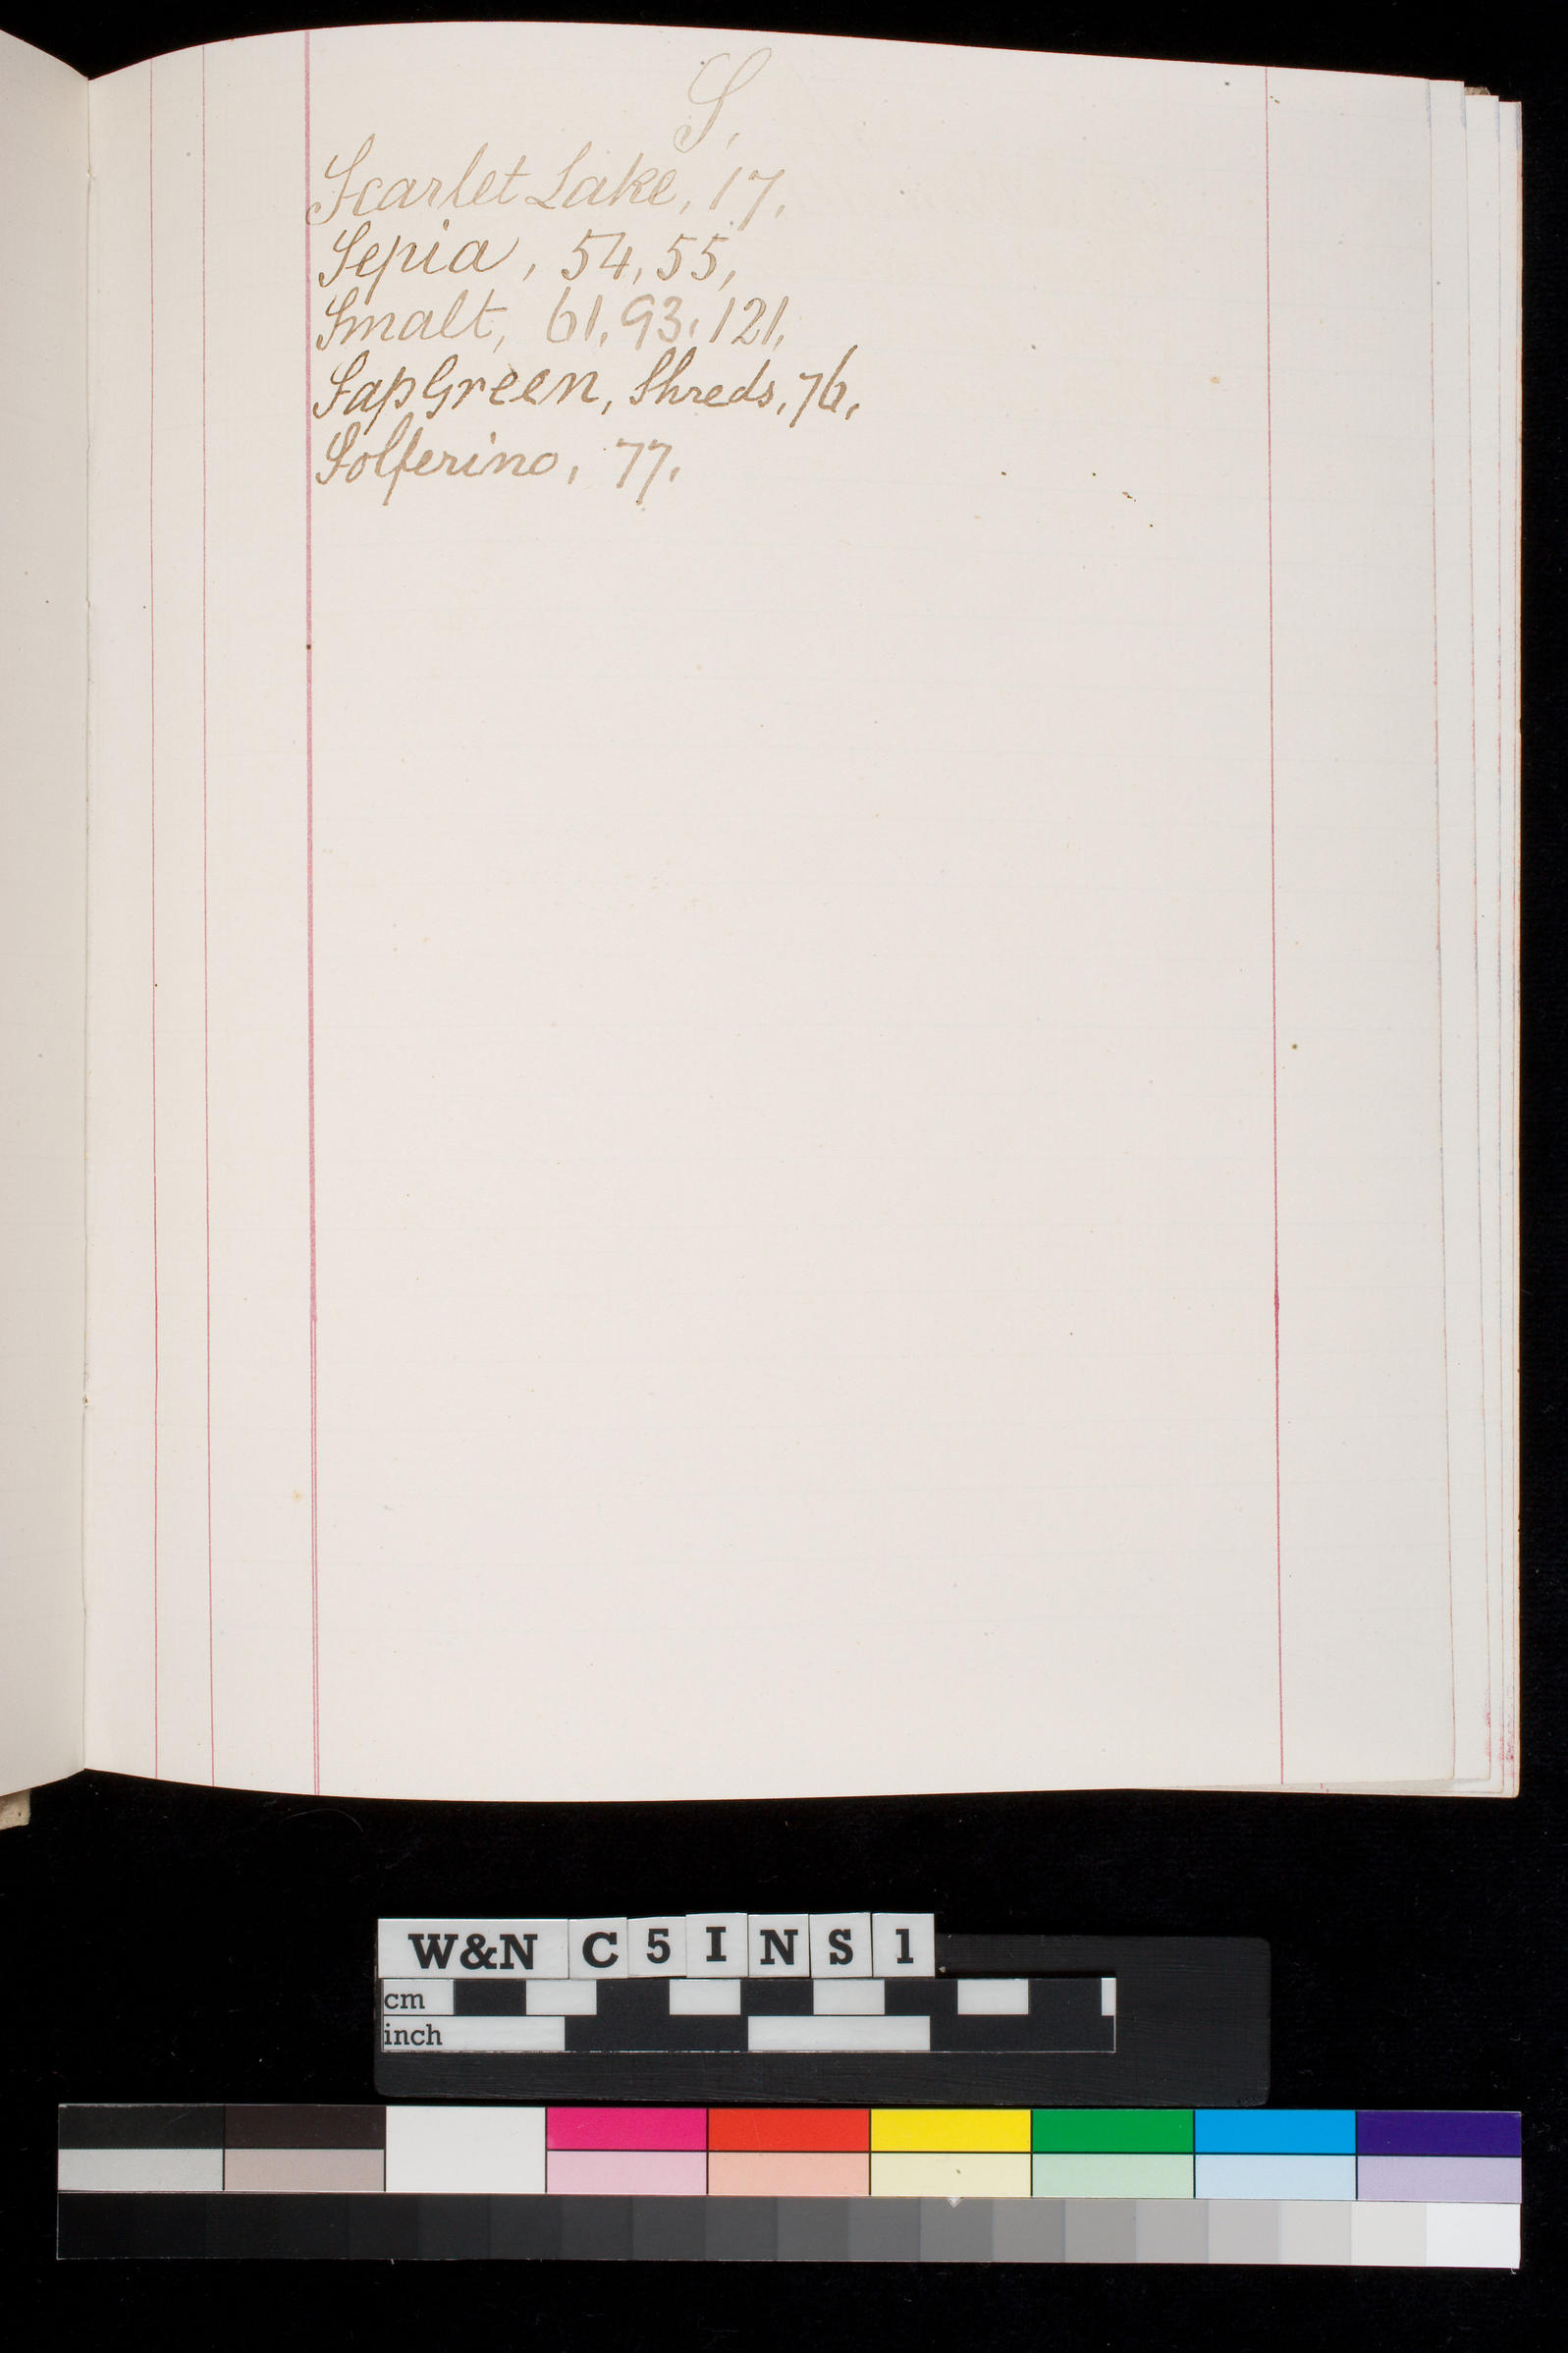 S.
Scarlet Lake, 17.
Sepia, 54, 55,
Smalt, 61, 93, 121,
Sap Green, Shreds, 76,
Solferino, 77.
W&N C 5 I N S 1
cm
inch